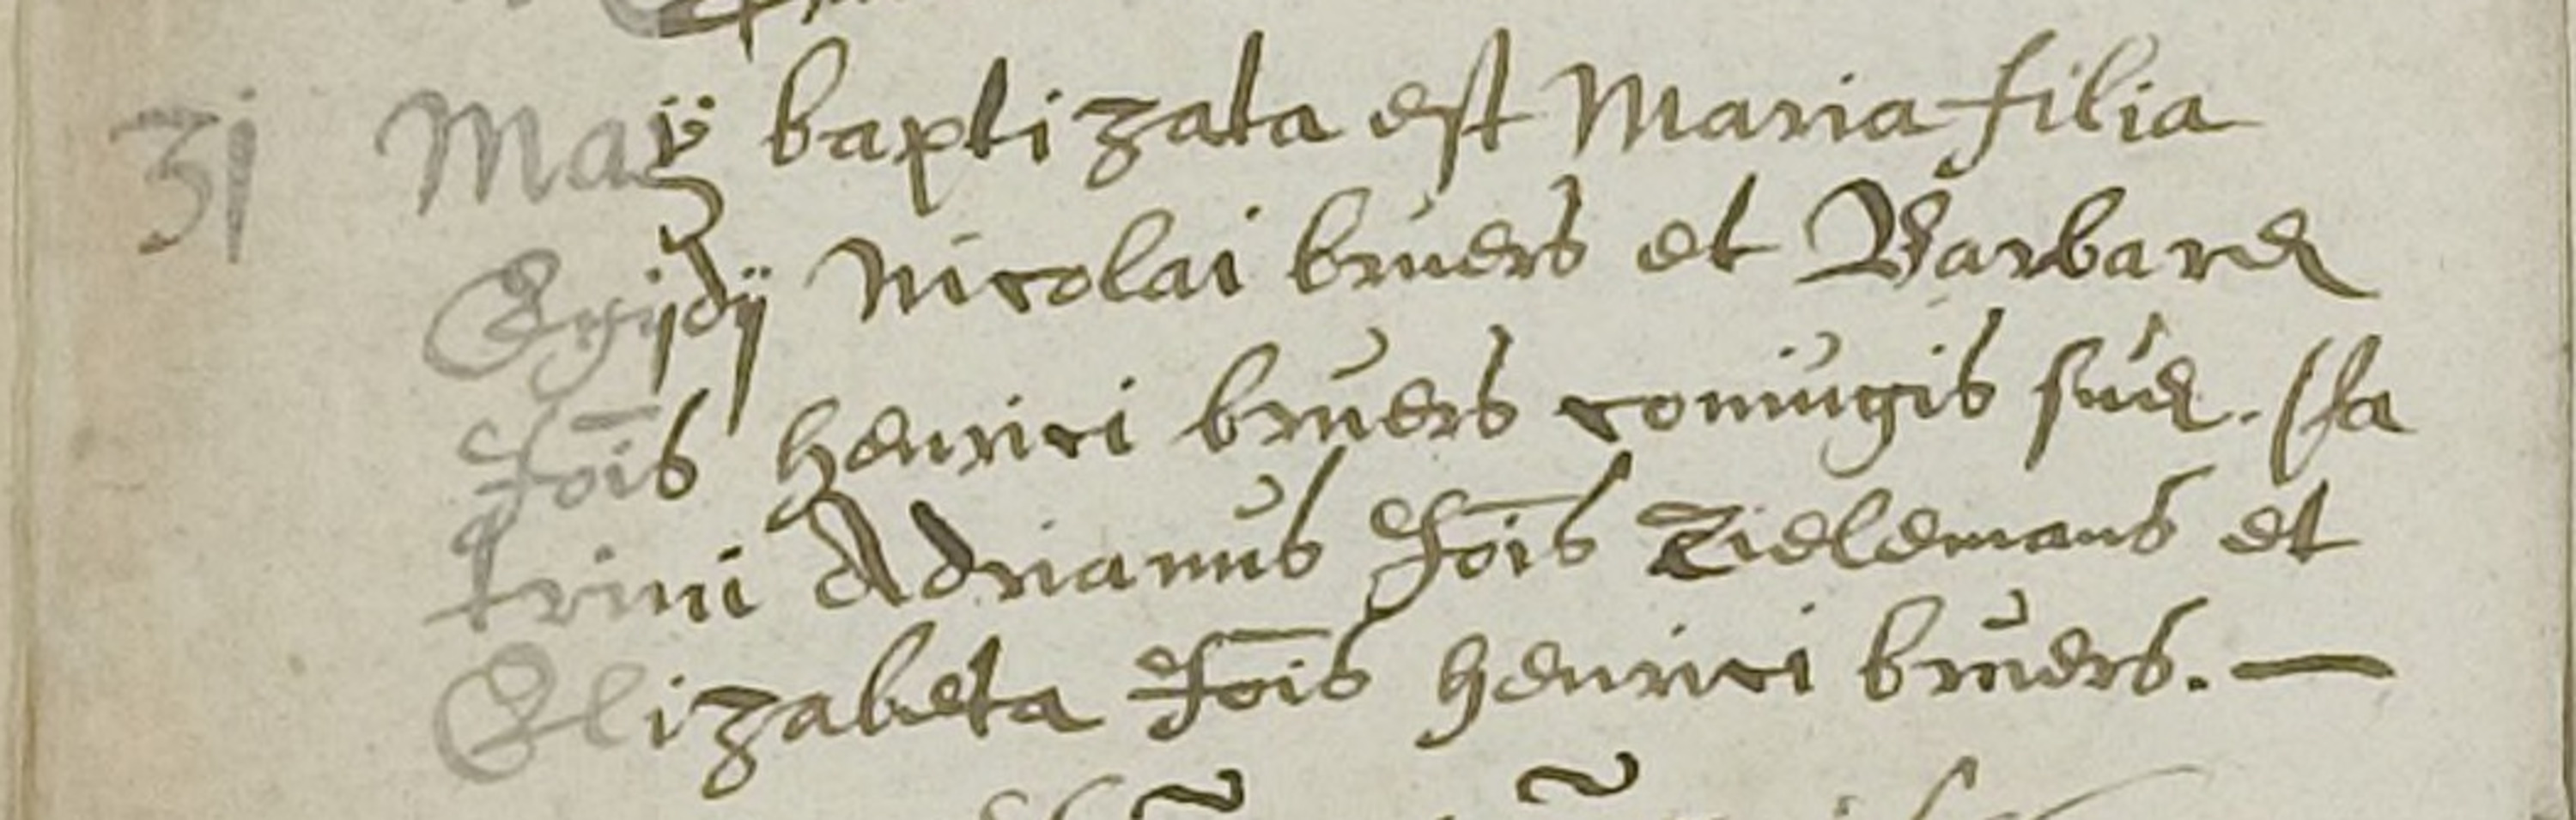 31 Maÿ baptizata est Maria filia
Egijdij Nicolai bruers et Barbaræ
Jo͞is Henrici bruers coniugis suæ. (Sa
trini Adrianus Jo͞is Zielemans et
Elizabeta Jo͞is Henrici bruers. —